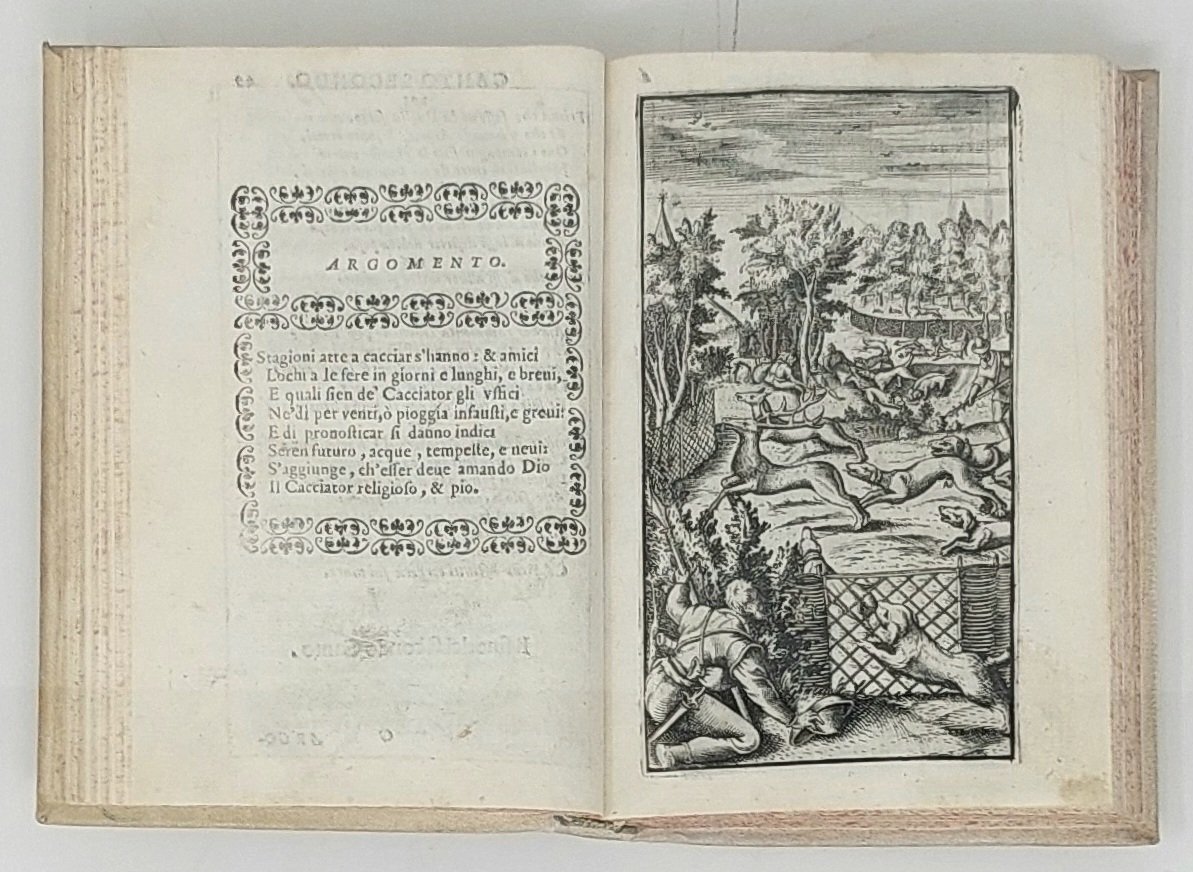 ARGOMENTO.
Stagioni atte a cacciar s'hanno: & amici
Lochi a le fere in giorni e lunghi, e brevi,
E quali sien de' Cacciator gli vffici
Ne'dì per venti, ò pioggia infausti, e grevi:
E di pronosticar si danno indici
Seren futuro, acque, tempeste, e nevi:
S'aggiunge, ch'esser deue amando Dio
Il Cacciator religioso, & pio.